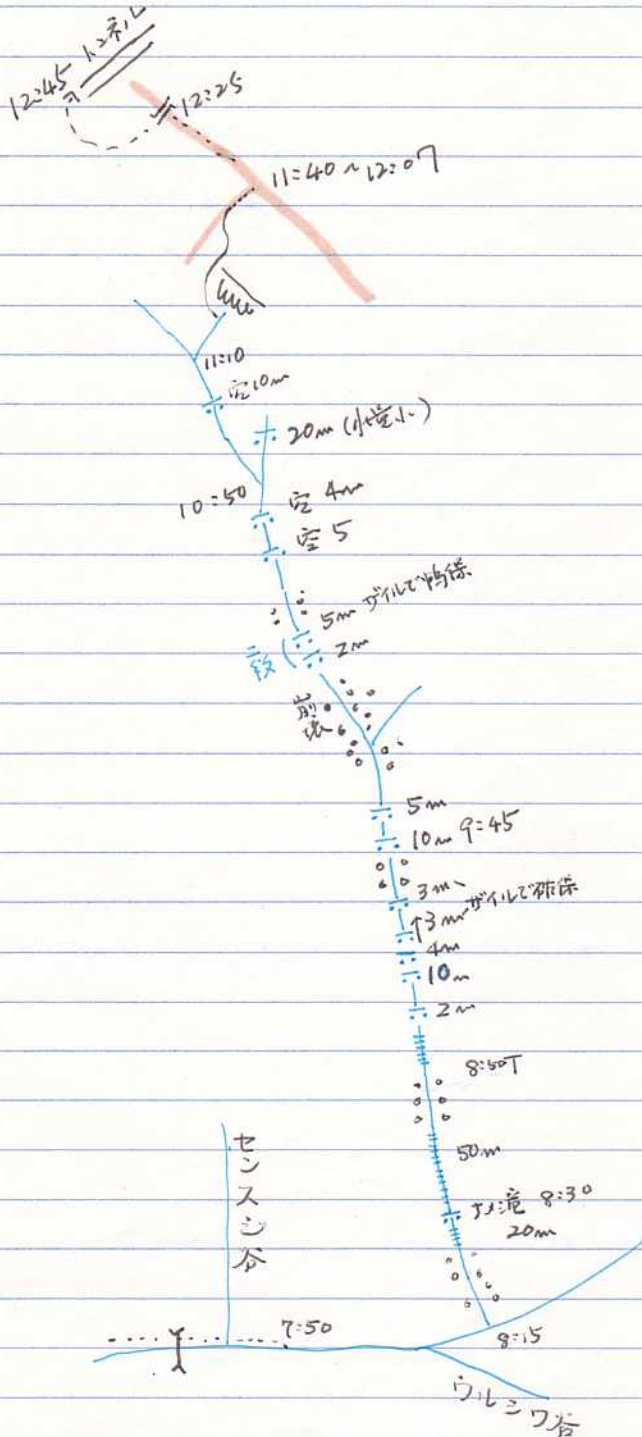 12:45 トンネル
12:25
11:40~12:07
11:10
空10m
20m (水量小)
10:50
空 4m
空 5
5m ザイルで確保
2m
二段
崩
5m
10m 9:45
3m
3m ザイルで確保
4m
10m
2m
8:50T
50m
ナメ滝 8:30
20m
センスジ谷
7:50
8:15
ウルシワ谷